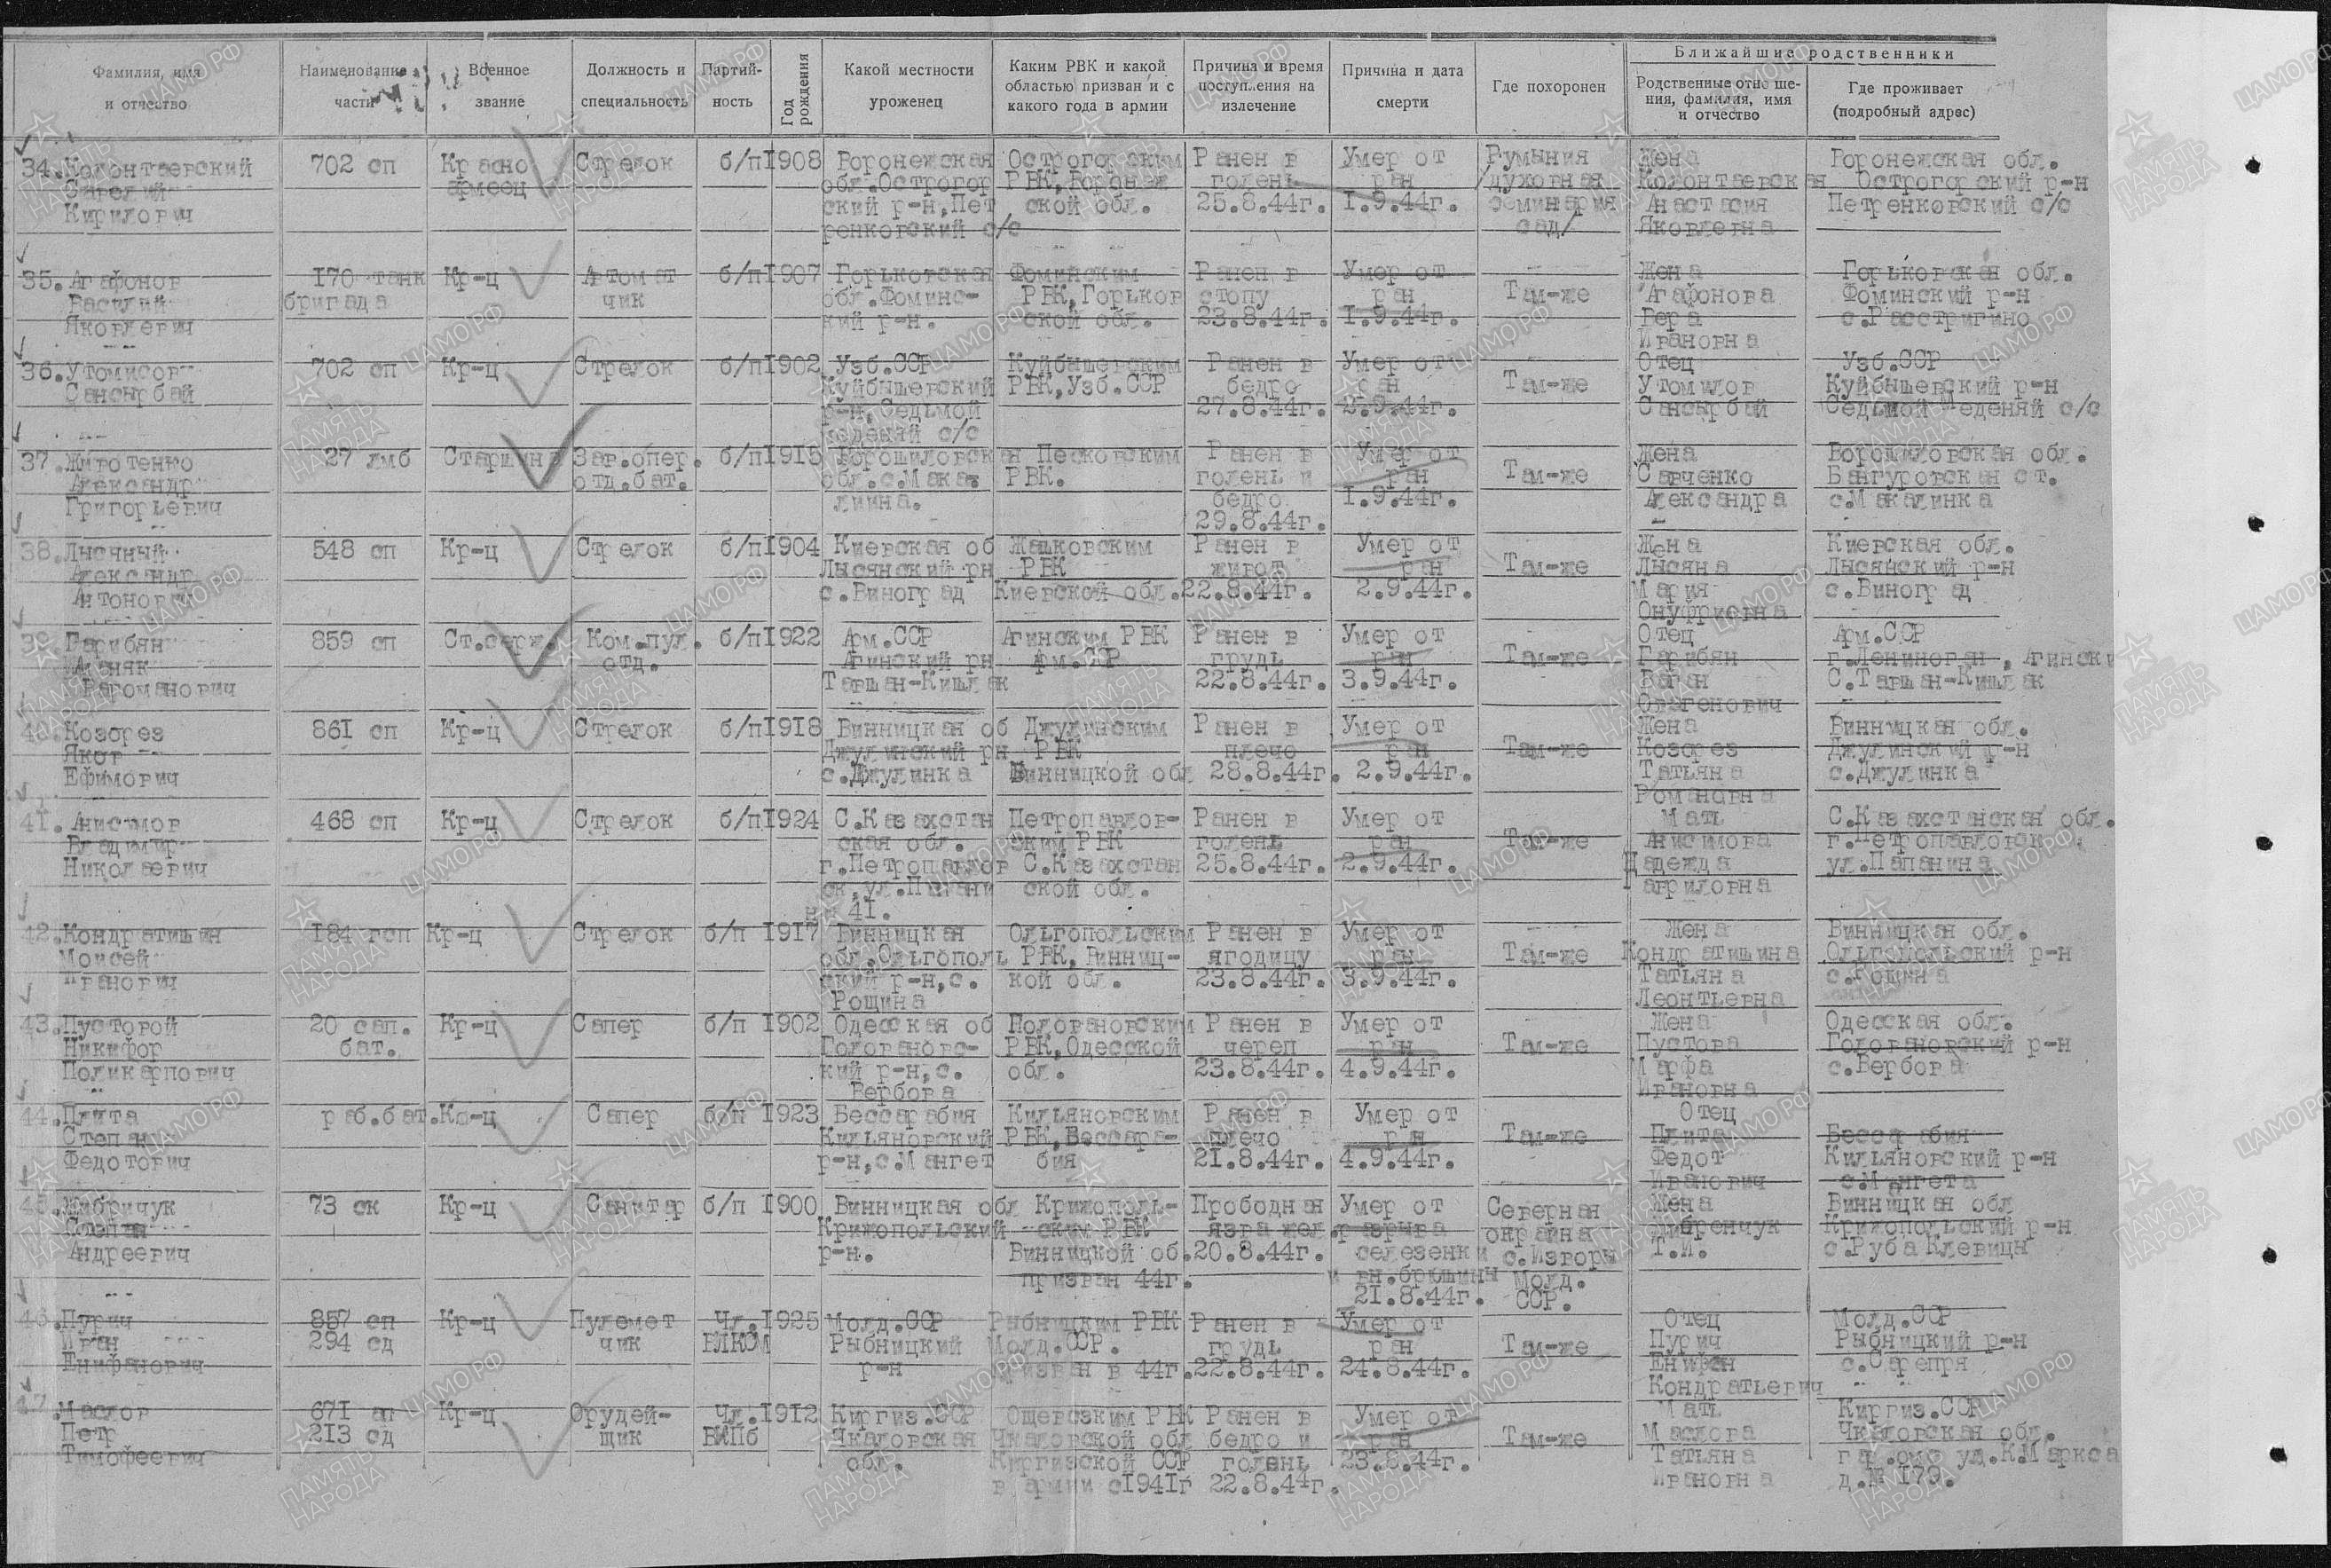 Фамилия, имя и отчество
Наименование части
Военное звание
Должность и специальность
Партий-ность
Год рождения
Какой местности уроженец
Каким РВК и какой областью призван и с какого года в армии
Причина и время поступления на излечение
Причина и дата смерти
Где похоронен
Ближайшие родственники
Родственные отноше-ния, фамилия, имя и отчество
Где проживает (подробный адрес)
34. Колонтаевский 702 сп Красно Стрелок б/п 1908 Воронежская Острогорским Ранен в Умер от Румыния Жена Воронежская обл.
Савелий армеец обл.Острогор РВК,Воронеж голень ран /духовная Колонтаевская Острогорский р-н
Кирилович ский р-н,Пет ской обл. 25.8.44г. 1.9.44г. семинария Анастасия Петренковский с/с
ренковский с/с сад/ Яковлевна
35. Агафонов 170 танк Кр-ц Автомат б/п 1907 Горьковская Фоминским Ранен в Умер от Жена Горьковская обл.
Василий бригада чик обл.Фоминс- РВК,Горьков стопу ран Там-же Агафонова Фоминский р-н
Яковлевич кий р-н. ской обл. 23.8.44г. 1.9.44г. Вера с.Расстригино
Ивановна
36. Утомисов 702 сп Кр-ц Стрелок б/п 1902 Узб.ССР Куйбышевским Ранен в Умер от Отец Узб.ССР
Сансырбай Куйбышевский РВК,Узб.ССР бедро ран Там-же Утомилов Куйбышевский р-н
р-н,Седьмой 27.8.44г. 2.9.44г. Сансырбай Седьмой Меденяй с/с
с/с
37. Животенко 27 лмб Старшина Зав.опер. б/п 1915 Ворошиловская Песковским Ранен в Умер от Жена Ворошиловская обл.
Александр отд.бат. обл.с.Макат РВК. голень и ран Там-же Савченко Вангуровская ст.
Григорьевич лиина. бедро 1.9.44г. Александра с.Макалинка
29.8.44г.
38. Лысяный 548 сп Кр-ц Стрелок б/п 1904 Киевская об Жашковским Ранен в Умер от Жена Киевская обл.
Александр Лысянский рн РВК живот ран Там-же Лысяна Лысянский р-н
Антонович с.Виноград Киевской обл. 22.8.44г. 2.9.44г. Мария с.Виноград
Онуфриевна
39. Гарибян 859 сп Ст.серж. Ком.пул. б/п 1922 Арм.ССР Агинским РВК Ранен в Умер от Отец Арм.ССР
отд. Агинский рн Арм.ССР грудь ран Там-же Гарибян г.Лениноган, Агински
Вагоманович Тавшан-Кишлак 22.8.44г. 3.9.44г. Ваган С.Тавшан-Кишлак
40. Козорез 861 сп Кр-ц Стрелок б/п 1918 Винницкая об Джулинским Ранен в Умер от Жена Винницкая обл.
Яков Джулинский рн РВК плечо ран Там-же Козорез Джулинский р-н
Ефимович с.Джулинка Винницкой обл 28.8.44г. 2.9.44г. Татьяна с.Джулинка
Романовна
41. Анисимов 468 сп Кр-ц Стрелок б/п 1924 С.Казахстан Петропавлов- Ранен в Умер от Мать С.Казахстанская обл.
Владимир ская обл. ским РВК голень ран Там-же Анисимова г.Петропавловск
Николаевич г.Петропавлов С.Казахстан 25.8.44г. 2.9.44г. Надежда ул.Папанина
ск,ул.Папани ской обл. Гавриловна
н 41.
42. Кондратишин 184 гсп Кр-ц Стрелок б/п 1917 Винницкая Ольгопольским Ранен в Умер от Жена Винницкая обл.
Моисей обл.Ольгополь РВК,Винниц- ягодицу ран Там-же Кондратишина Ольгопольский р-н
Иванович ский р-н,с. кой обл. 23.8.44г. 3.9.44г. Татьяна с.Рощина
Рощина Леонтьевна
43. Пустовой 20 сап. Кр-ц Сапер б/п 1902 Одесская об Головановским Ранен в Умер от Жена Одесская обл.
Никифор бат. Головановс- РВК,Одесской череп ран Там-же Пустова Головановский р-н
Поликарпович кий р-н,с. обл. 23.8.44г. 4.9.44г. Марфа с.Вербова
Вербова Ивановна
44. Плита раб.бат. Кр-ц Сапер б/п 1923 Бессарабия Кильяновским Ранен в Умер от Отец
Степан Кильяновский РВК,Бессара- плечо ран Там-же Плита Бессарабия
Федотович р-н,с.Мангет бия 21.8.44г. 4.9.44г. Федот Кильяновский р-н
Иванович с.Мангета
45. Жибричук 73 ск Кр-ц Санитар б/п 1900 Винницкая обл Крижополь- Прободная Умер от Северная Жена Винницкая обл
Степан Крижопольский ским РВК язва жел. разрыва окраина Жибренчук Крижопольский р-н
Андреевич р-н. Винницкой об. 20.8.44г. селезенки с.Изворы Т.И. с.Руба Клевицы
призван 44г. и вн.брюшины Молд.
21.8.44г. ССР.
46. Пурич 857 сп Кр-ц Пулемет Чл. 1925 Молд.ССР Рыбницким РВК Ранен в Умер от Отец Молд.ССР
Иван 294 сд чик ВЛКСМ Рыбницкий Молд.ССР. грудь ран Там-же Пурич Рыбницкий р-н
Енифанович р-н призван в 44г. 22.8.44г. 24.8.44г. Енифан с.Сарепря
Кондратьевич
47. Маслов 671 ап Кр-ц Орудей- Чл. 1912 Киргиз.ССР Ощевским РВК Ранен в Умер от Мать Киргиз.ССР
Петр 213 сд щик ВКПб Чкаловская Чкаловской обл бедро и ран Там-же Маслова Чкаловская обл.
Тимофеевич обл. Киргизской ССР голень 23.8.44г. Татьяна ул.К.Маркса
в армии с1941г 22.8.44г. Ивановна д.№ 179.